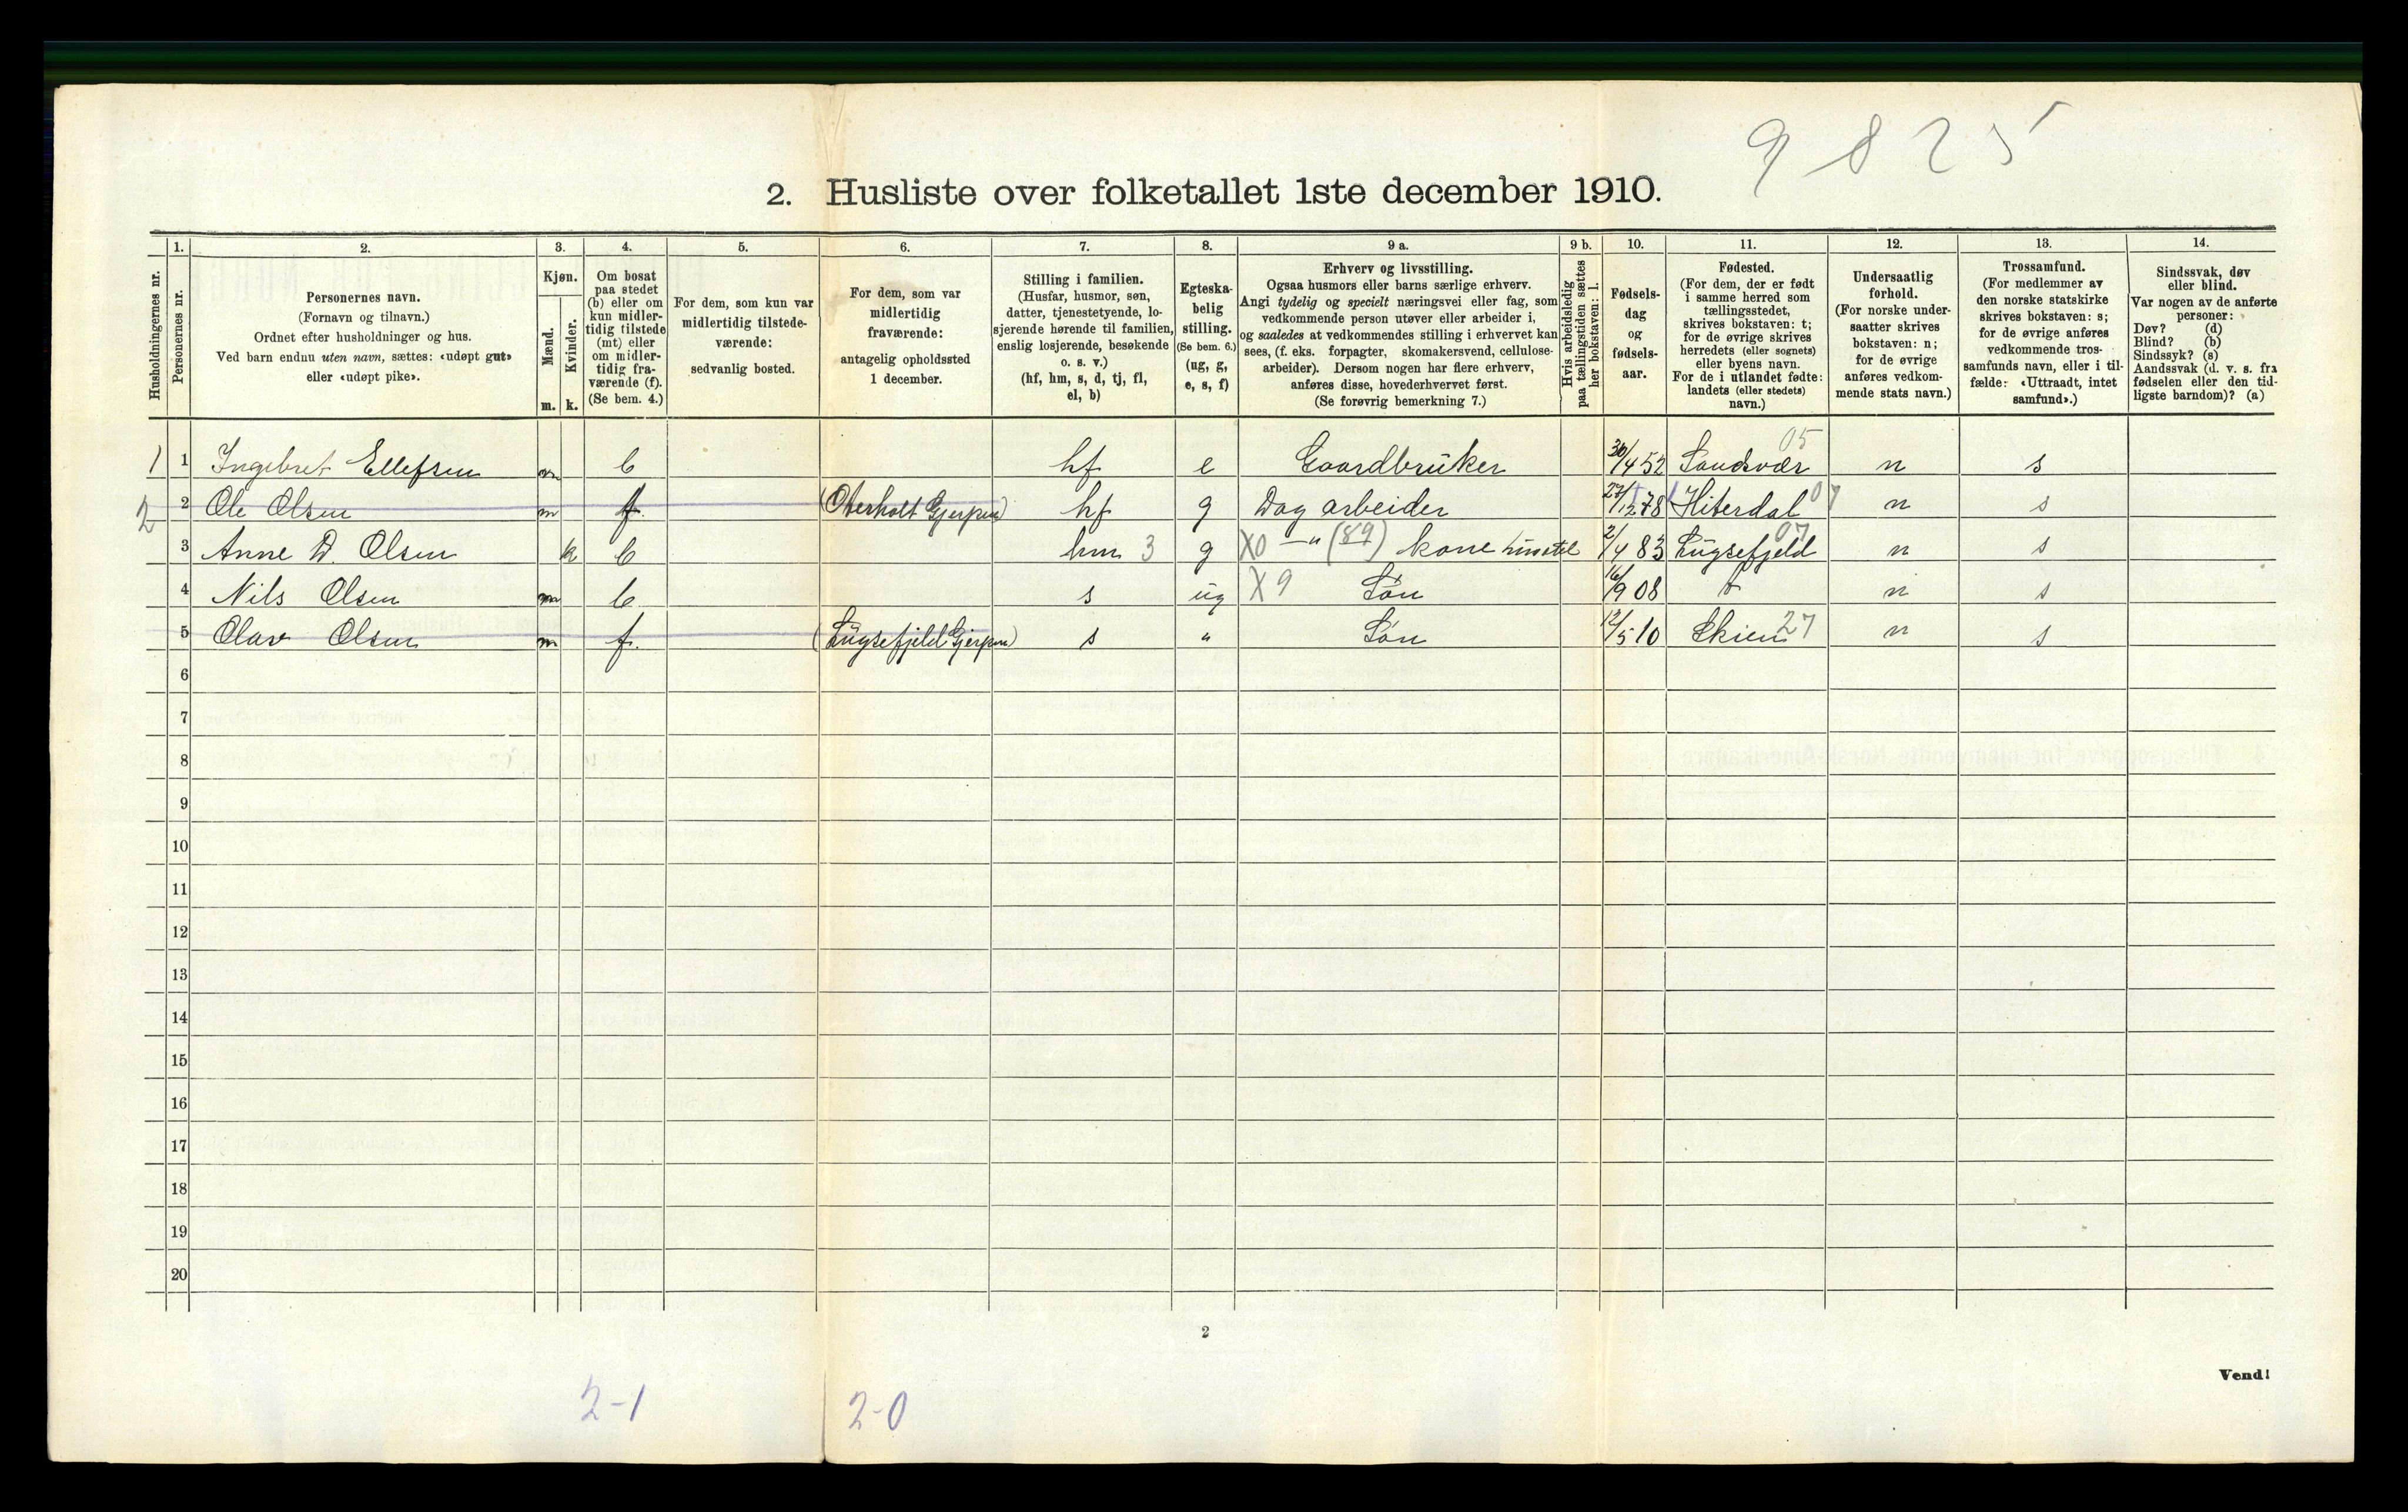 9 8 2 5
2. Husliste over folketallet 1ste december 1910.
Husholdningernes nr.
1.
Personernes nr.
2.
Personernes navn.
(Fornavn og tilnavn.)
Ordnet efter husholdninger og hus.
Ved barn endnu uten navn, sættes: «udøpt gut»
eller «udøpt pike».
3.
Kjøn.
Mænd.
Kvinder.
m. k.
4.
Om bosat
paa stedet
(b) eller om
kun midler-
tidig tilstede
(mt) eller
om midler-
tidig fra-
værende (f).
(Se bem. 4.)
5.
For dem, som kun var
midlertidig tilstede-
værende:
sedvanlig bosted.
6.
For dem, som var
midlertidig
fraværende:
antagelig opholdssted
1 december.
7.
Stilling i familien.
(Husfar, husmor, søn,
datter, tjenestetyende, lo-
sjerende hørende til familien,
enslig losjerende, besøkende
o. s. v.)
(hf, hm, s, d, tj, fl,
el, b)
8.
Egteska-
belig
stilling.
(Se bem. 6.)
(ug, g,
e, s, f)
9 a.
Erhverv og livsstilling.
Ogsaa husmors eller barns særlige erhverv.
Angi tydelig og specielt næringsvei eller fag, som
vedkommende person utøver eller arbeider i,
og saaledes at vedkommendes stilling i erhvervet kan
sees, (f. eks. forpagter, skomakersvend, cellulose-
arbeider). Dersom nogen har flere erhverv,
anføres disse, hovederhvervet først.
(Se forøvrig bemerkning 7.)
9 b.
Hvis arbeidsledig
paa tællingstiden sættes
her bokstaven: l.
10.
Fødsels-
dag
og
fødsels-
aar.
11.
Fødested.
(For dem, der er født
i samme herred som
tællingsstedet,
skrives bokstaven: t;
for de øvrige skrives
herredets (eller sognets)
eller byens navn.
For de i utlandet fødte:
landets (eller stedets)
navn.)
12.
Undersaatlig
forhold.
(For norske under-
saatter skrives
bokstaven: n;
for de øvrige
anføres vedkom-
mende stats navn.)
13.
Trossamfund.
(For medlemmer av
den norske statskirke
skrives bokstaven: s;
for de øvrige anføres
vedkommende tros-
samfunds navn, eller i til-
fælde: «Uttraadt, intet
samfund».)
14.
Sindssvak, døv
eller blind.
Var nogen av de anførte
personer:
Døv? (d)
Blind? (b)
Sindssyk? (s)
Aandssvak (d. v. s. fra
fødselen eller den tid-
ligste barndom)? (a)
1 1 Ingebret Ellefsen m b hf e Gaardbruker 30/4 52 Sandsvær 05 n s
2 2 Ole Olsen m f (Oterholt Gjerpen) hf g Dag arbeider 27/12 78 Hiterdal 07 n s
3 Anne D. Olsen k b hm 3 g X0 —" (89) kone husstel 2/4 83 Lugsefjeld 07 n s
4 Nils Olsen m b s ug X9 Søn 16/9 08 t n s
5 Olav Olsen m f. (Lugsefjeld Gjerpen) s " Søn 12/5 10 Skien 27 n s
6
7
8
9
10
11
12
13
14
15
16
17
18
19
20
2
Vend!
2-1 2-0